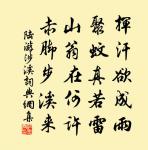 揮汗欲成雨
聚蚊真若雷
山翁在何許
赤脚步溪来
陆游涉溪詞典網集